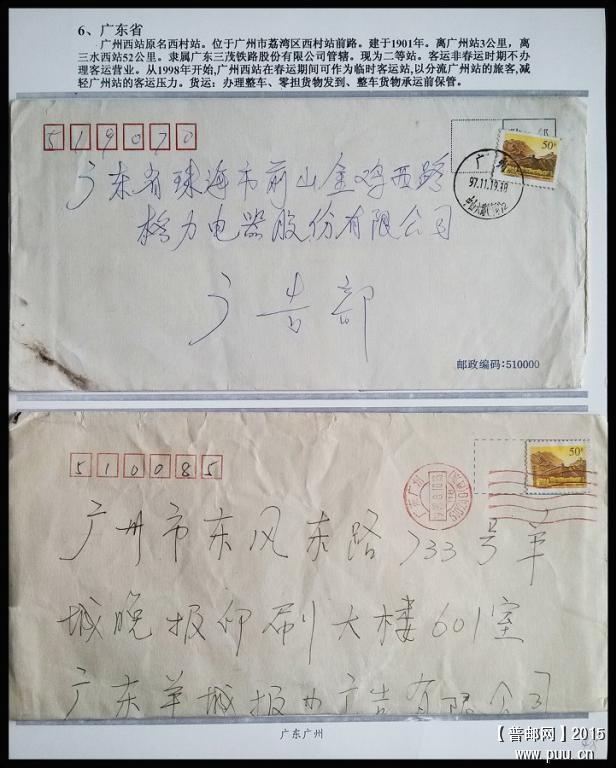 6、广东省
广州西站原名西村站。位于广州市荔湾区西村站前路。建于1901年。离广州站3公里，离
三水西站52公里。隶属广东三茂铁路股份有限公司管辖。现为二等站。客运非春运时期不办
理客运营业。从1998年开始，广州西站在春运期间可作为临时客运站，以分流广州站的旅客，减
轻广州站的客运压力。货运：办理整车、零担货物发到、整车货物承运前保管。
519070
50
广州
97.11.19.18
广东省珠海市前山金鸡西路
格力电器股份有限公司
广告部
邮政编码：510000
510085
50
广州
广州市东风东路733号羊
城晚报印刷大楼601室
广东羊城报办广告有限公司
广东广州
【普邮网】2015
www.puu.cn